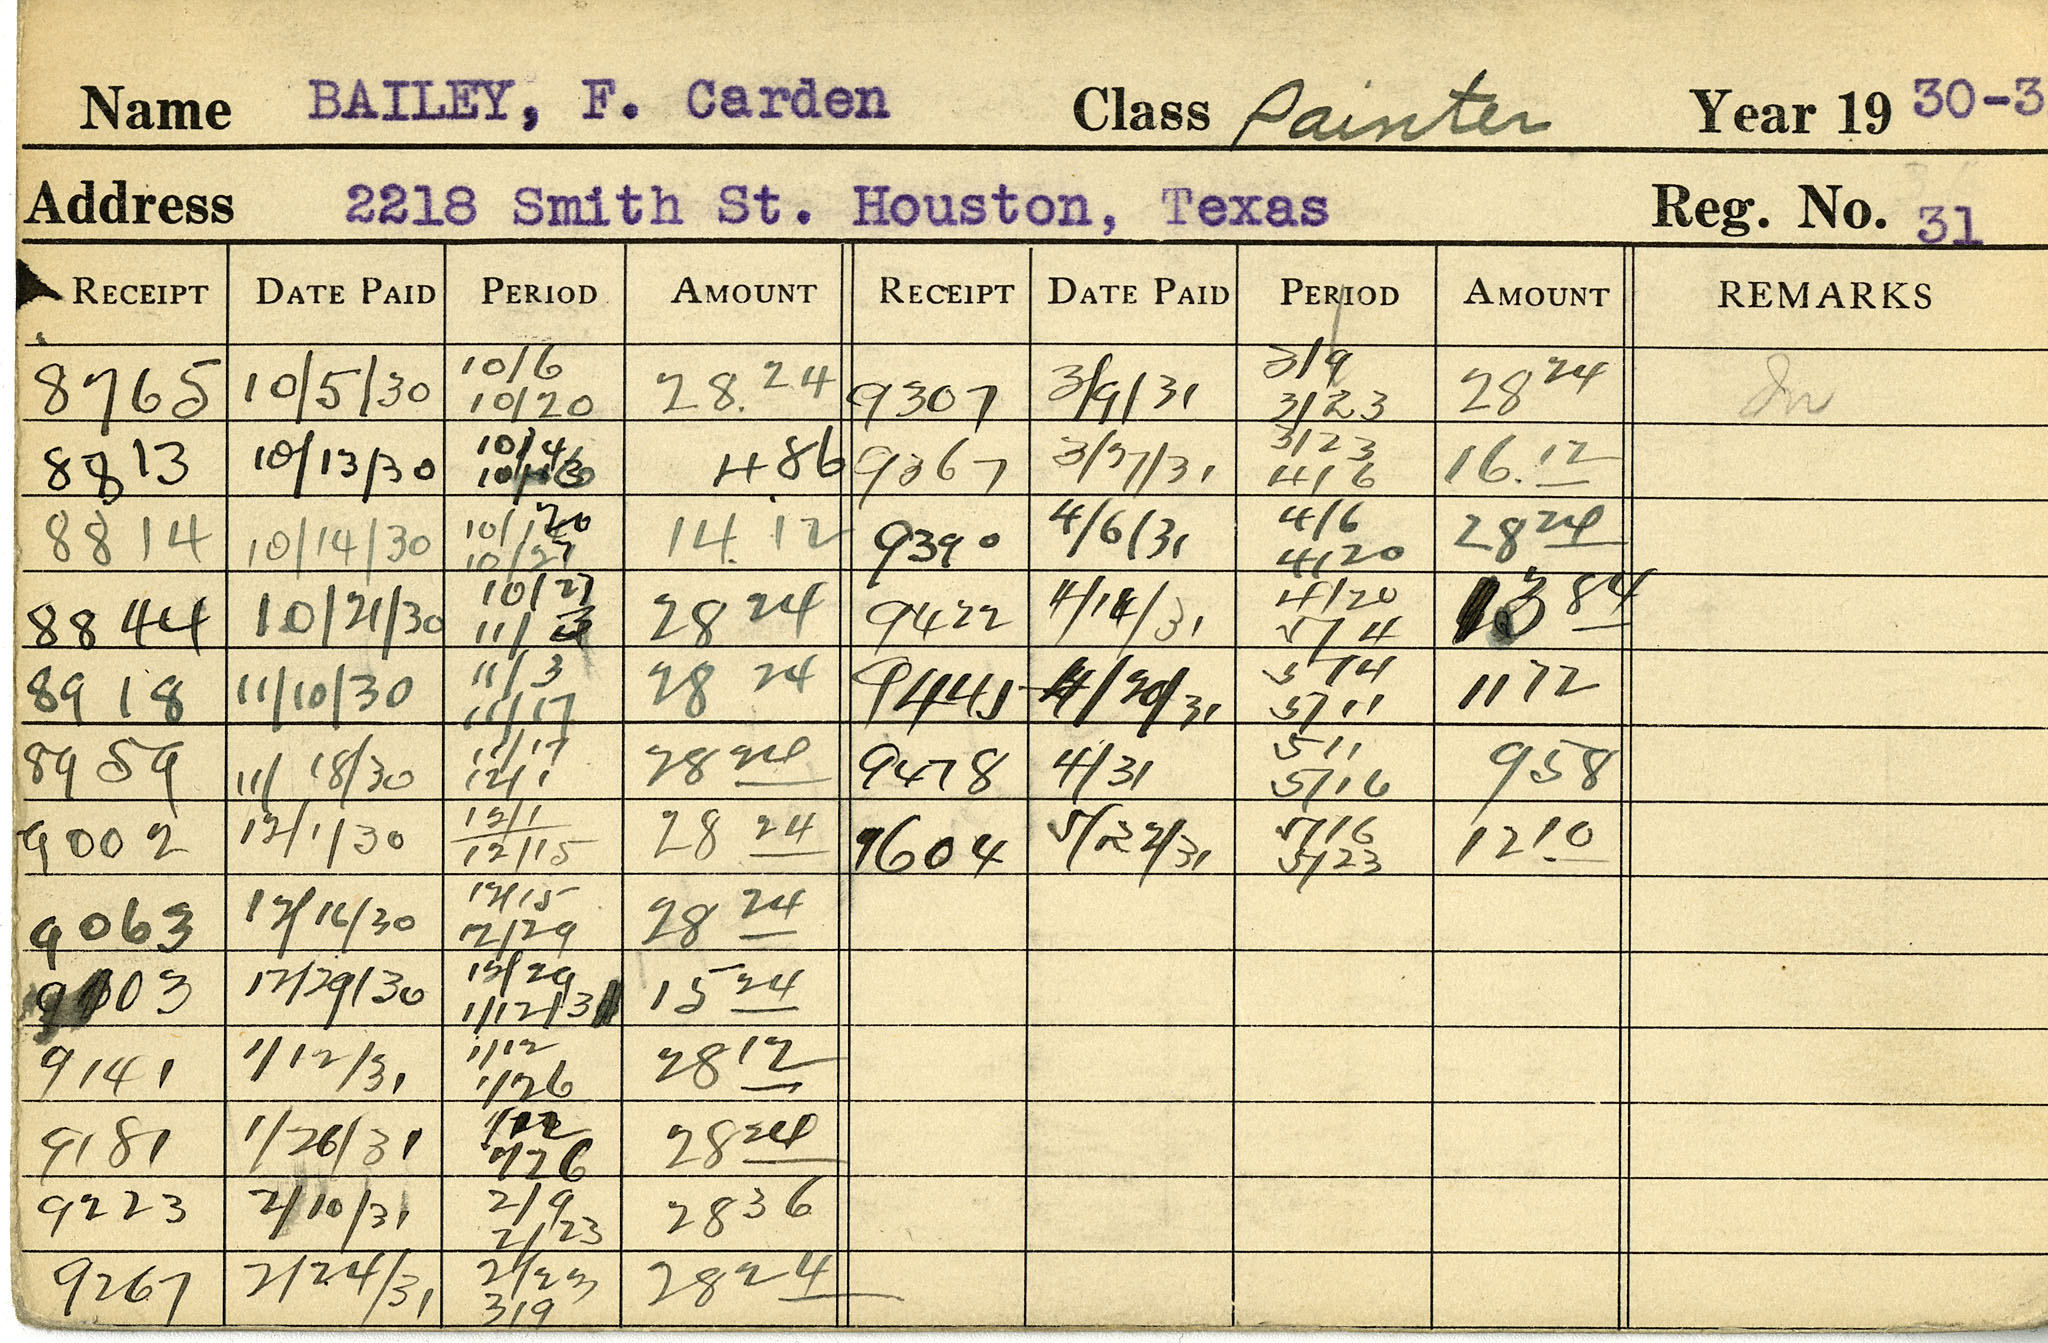 Name BAILEY, F. Carden Class Painter Year 19 30-3
Address 2218 Smith St. Houston, Texas Reg. No. 31
RECEIPT DATE PAID PERIOD AMOUNT RECEIPT DATE PAID PERIOD AMOUNT REMARKS
8765 10/5/30 10/6 10/20 28.24 9307 3/9/31 3/9 3/23 28 24
8813 10/13/30 10/4 486 9367 3/27/31 3/23 4/6 16.12
8814 10/14/30 10/20 10/27 14.12 9390 4/6/31 4/6 4/20 28 24
8844 10/21/30 10/27 11/3 28 24 9422 4/14/31 4/20 5/4 13 84
8918 11/10/30 11/3 11/17 28 24 9445 4/20/31 5/4 5/11 11 72
8959 11/18/30 11/17 12/1 28 24 9478 4/31 5/11 5/16 9 58
9002 12/1/30 12/1 12/15 28 24 9604 5/22/31 5/16 5/23 12 10
9063 12/16/30 12/15 12/29 28 24
9103 12/29/30 12/29 1/12/31 15 24
9141 1/12/31 1/12 1/26 28 12
9181 1/26/31 1/26 28 24
9223 2/10/31 2/9 2/23 28 36
9267 2/24/31 2/23 3/9 28 24